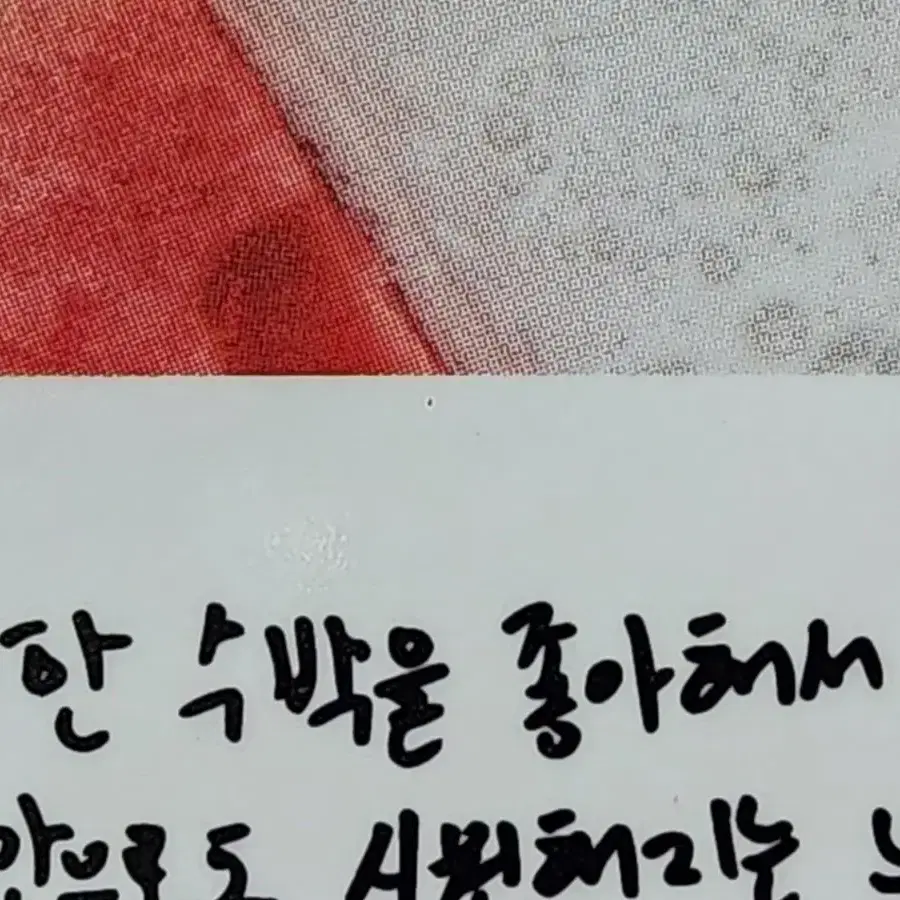 한 수박을 좋아해서
만으로도 시원해지는